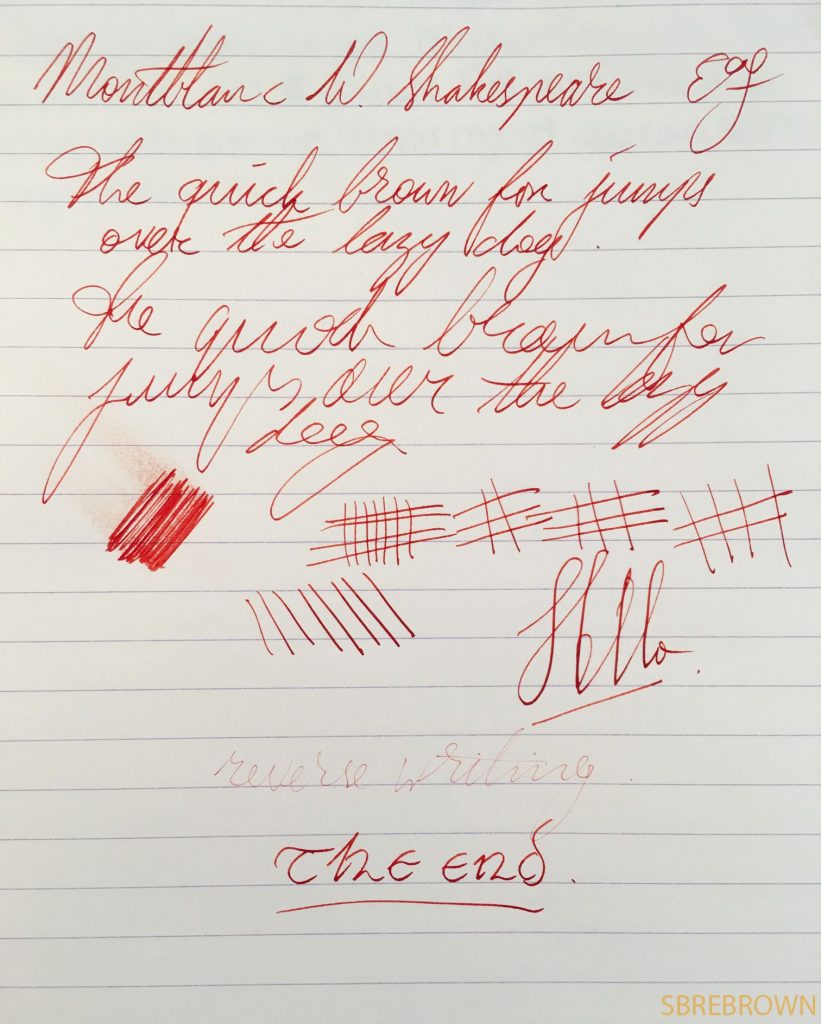 Montblanc W. Shakespeare EF
The quick brown fox jumps
over the lazy dog.
The quick brown fox
jumps over the lazy
dog
Hello.
reverse writing.
The End.
SBREBROWN